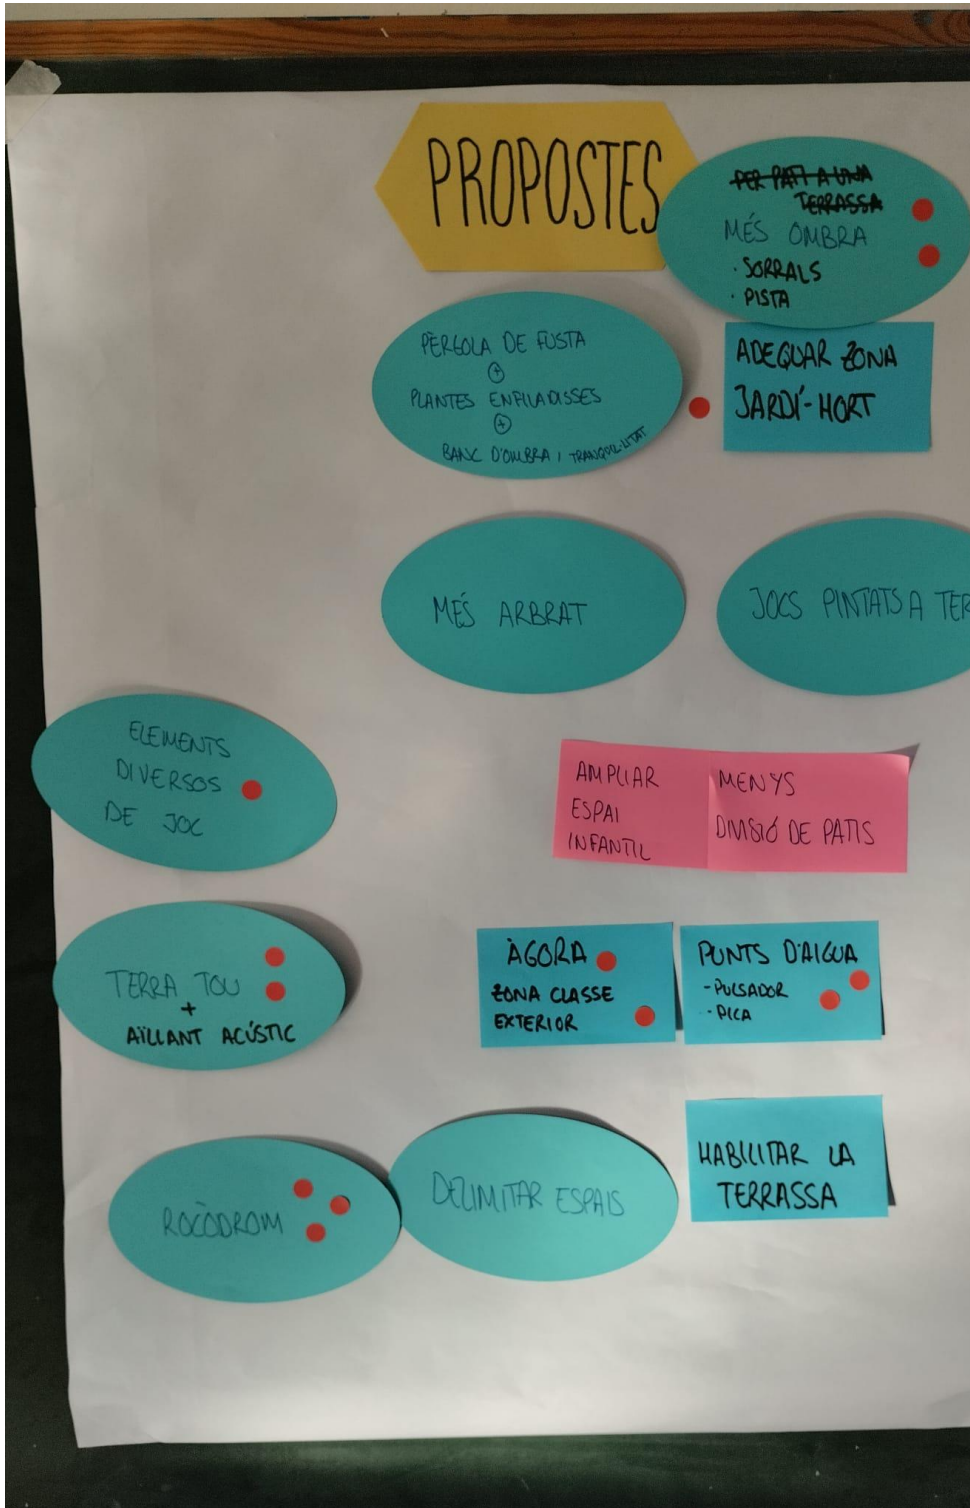 PROPOSTES
PER PATI A UNA
TERRASSA
MÉS OMBRA
· SORRALS
· PISTA
PÈRGOLA DE FUSTA
+
PLANTES ENFILADISSES
+
BANC D'OMBRA I TRANQUIL·LITAT
ADEQUAR ZONA
JARDÍ-HORT
MÉS ARBRAT
JOCS PINTATS A TER
ELEMENTS
DIVERSOS
DE JOC
AMPLIAR
ESPAI
INFANTIL
MENYS
DIVISIÓ DE PATIS
TERRA TOU
+
AÏLLANT ACÚSTIC
ÀGORA
ZONA CLASSE
EXTERIOR
PUNTS D'AIGUA
- PULSADOR
- PICA
ROCÒDROM
DELIMITAR ESPAIS
HABILITAR LA
TERRASSA